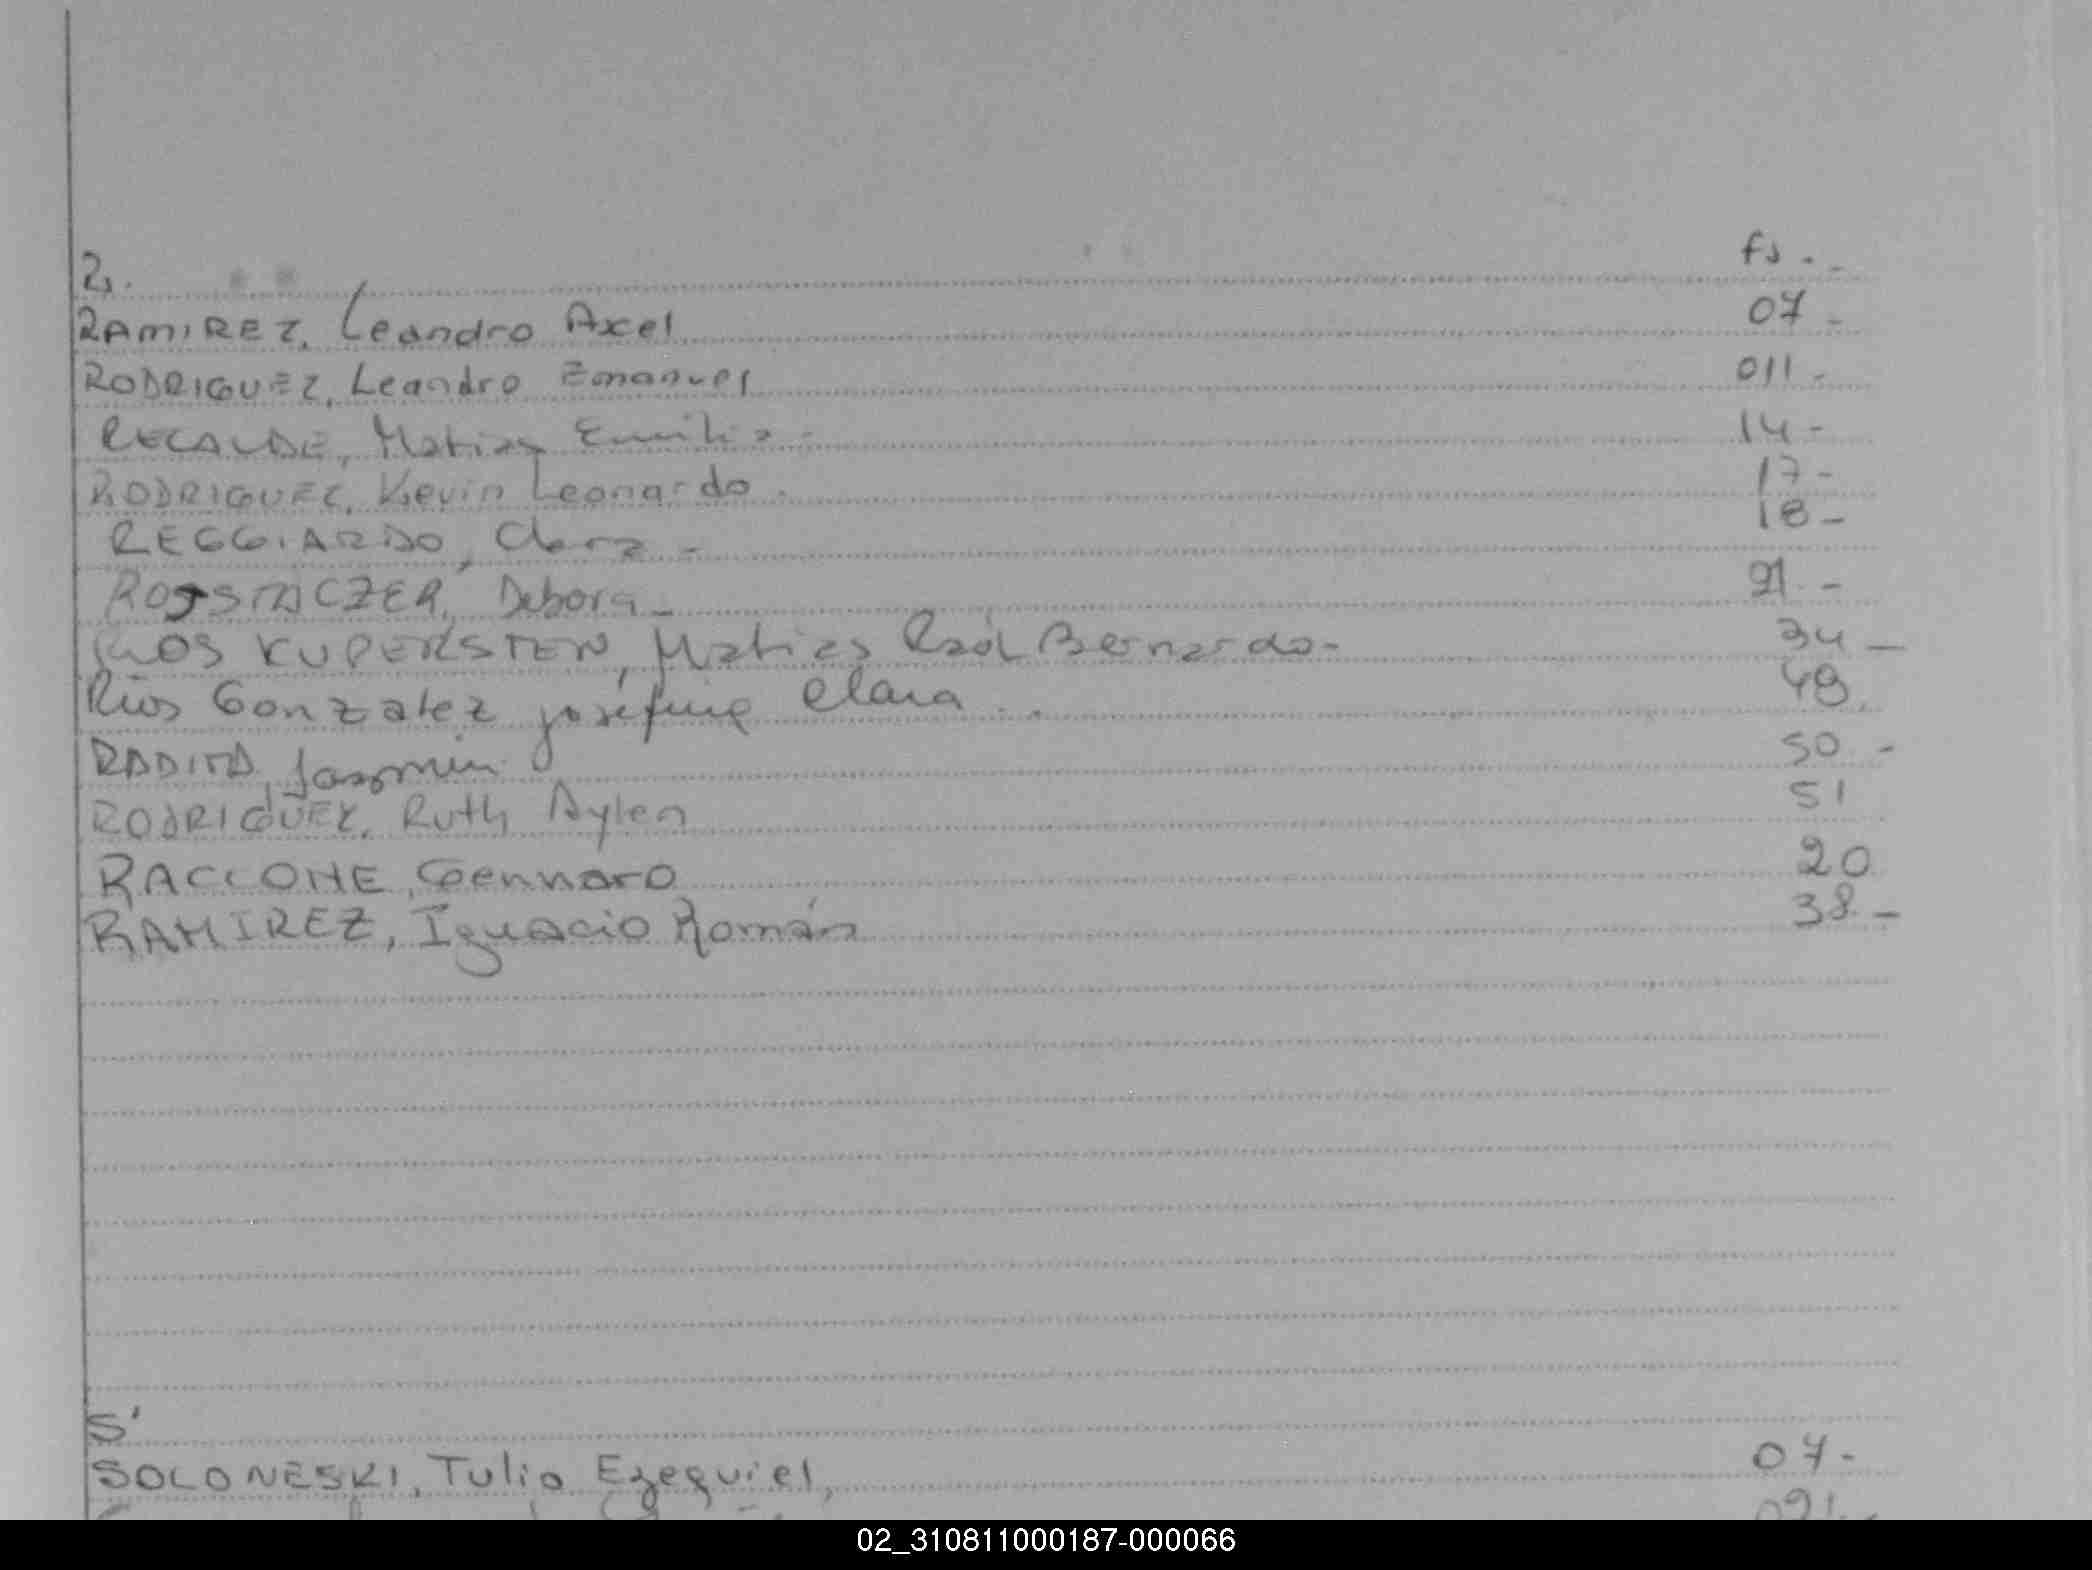 R.	fs.-
RAMIREZ, Leandro Axel	07-
RODRIGUEZ, Leandro Emanuel	011-
RECALDE, Matias Emilio-	14-
RODRIGUEZ, Kevin Leonardo.	17-
REGGIARDO, Clara-	18-
ROJSTACZER, Debora-	21-
RIOS KUPERSTEN, Matias Raúl Bernardo-	34-
Rios Gonzalez josefina Clara..	49.
RADITA, Jasmin	50-
RODRIGUEZ, Ruth Aylen	51
RACCIONE, Gennaro	20
RAMIREZ, Ignacio Román	38-
S'
SOLONESKI, Tulio Ezequiel,	07-
02_310811000187-000066